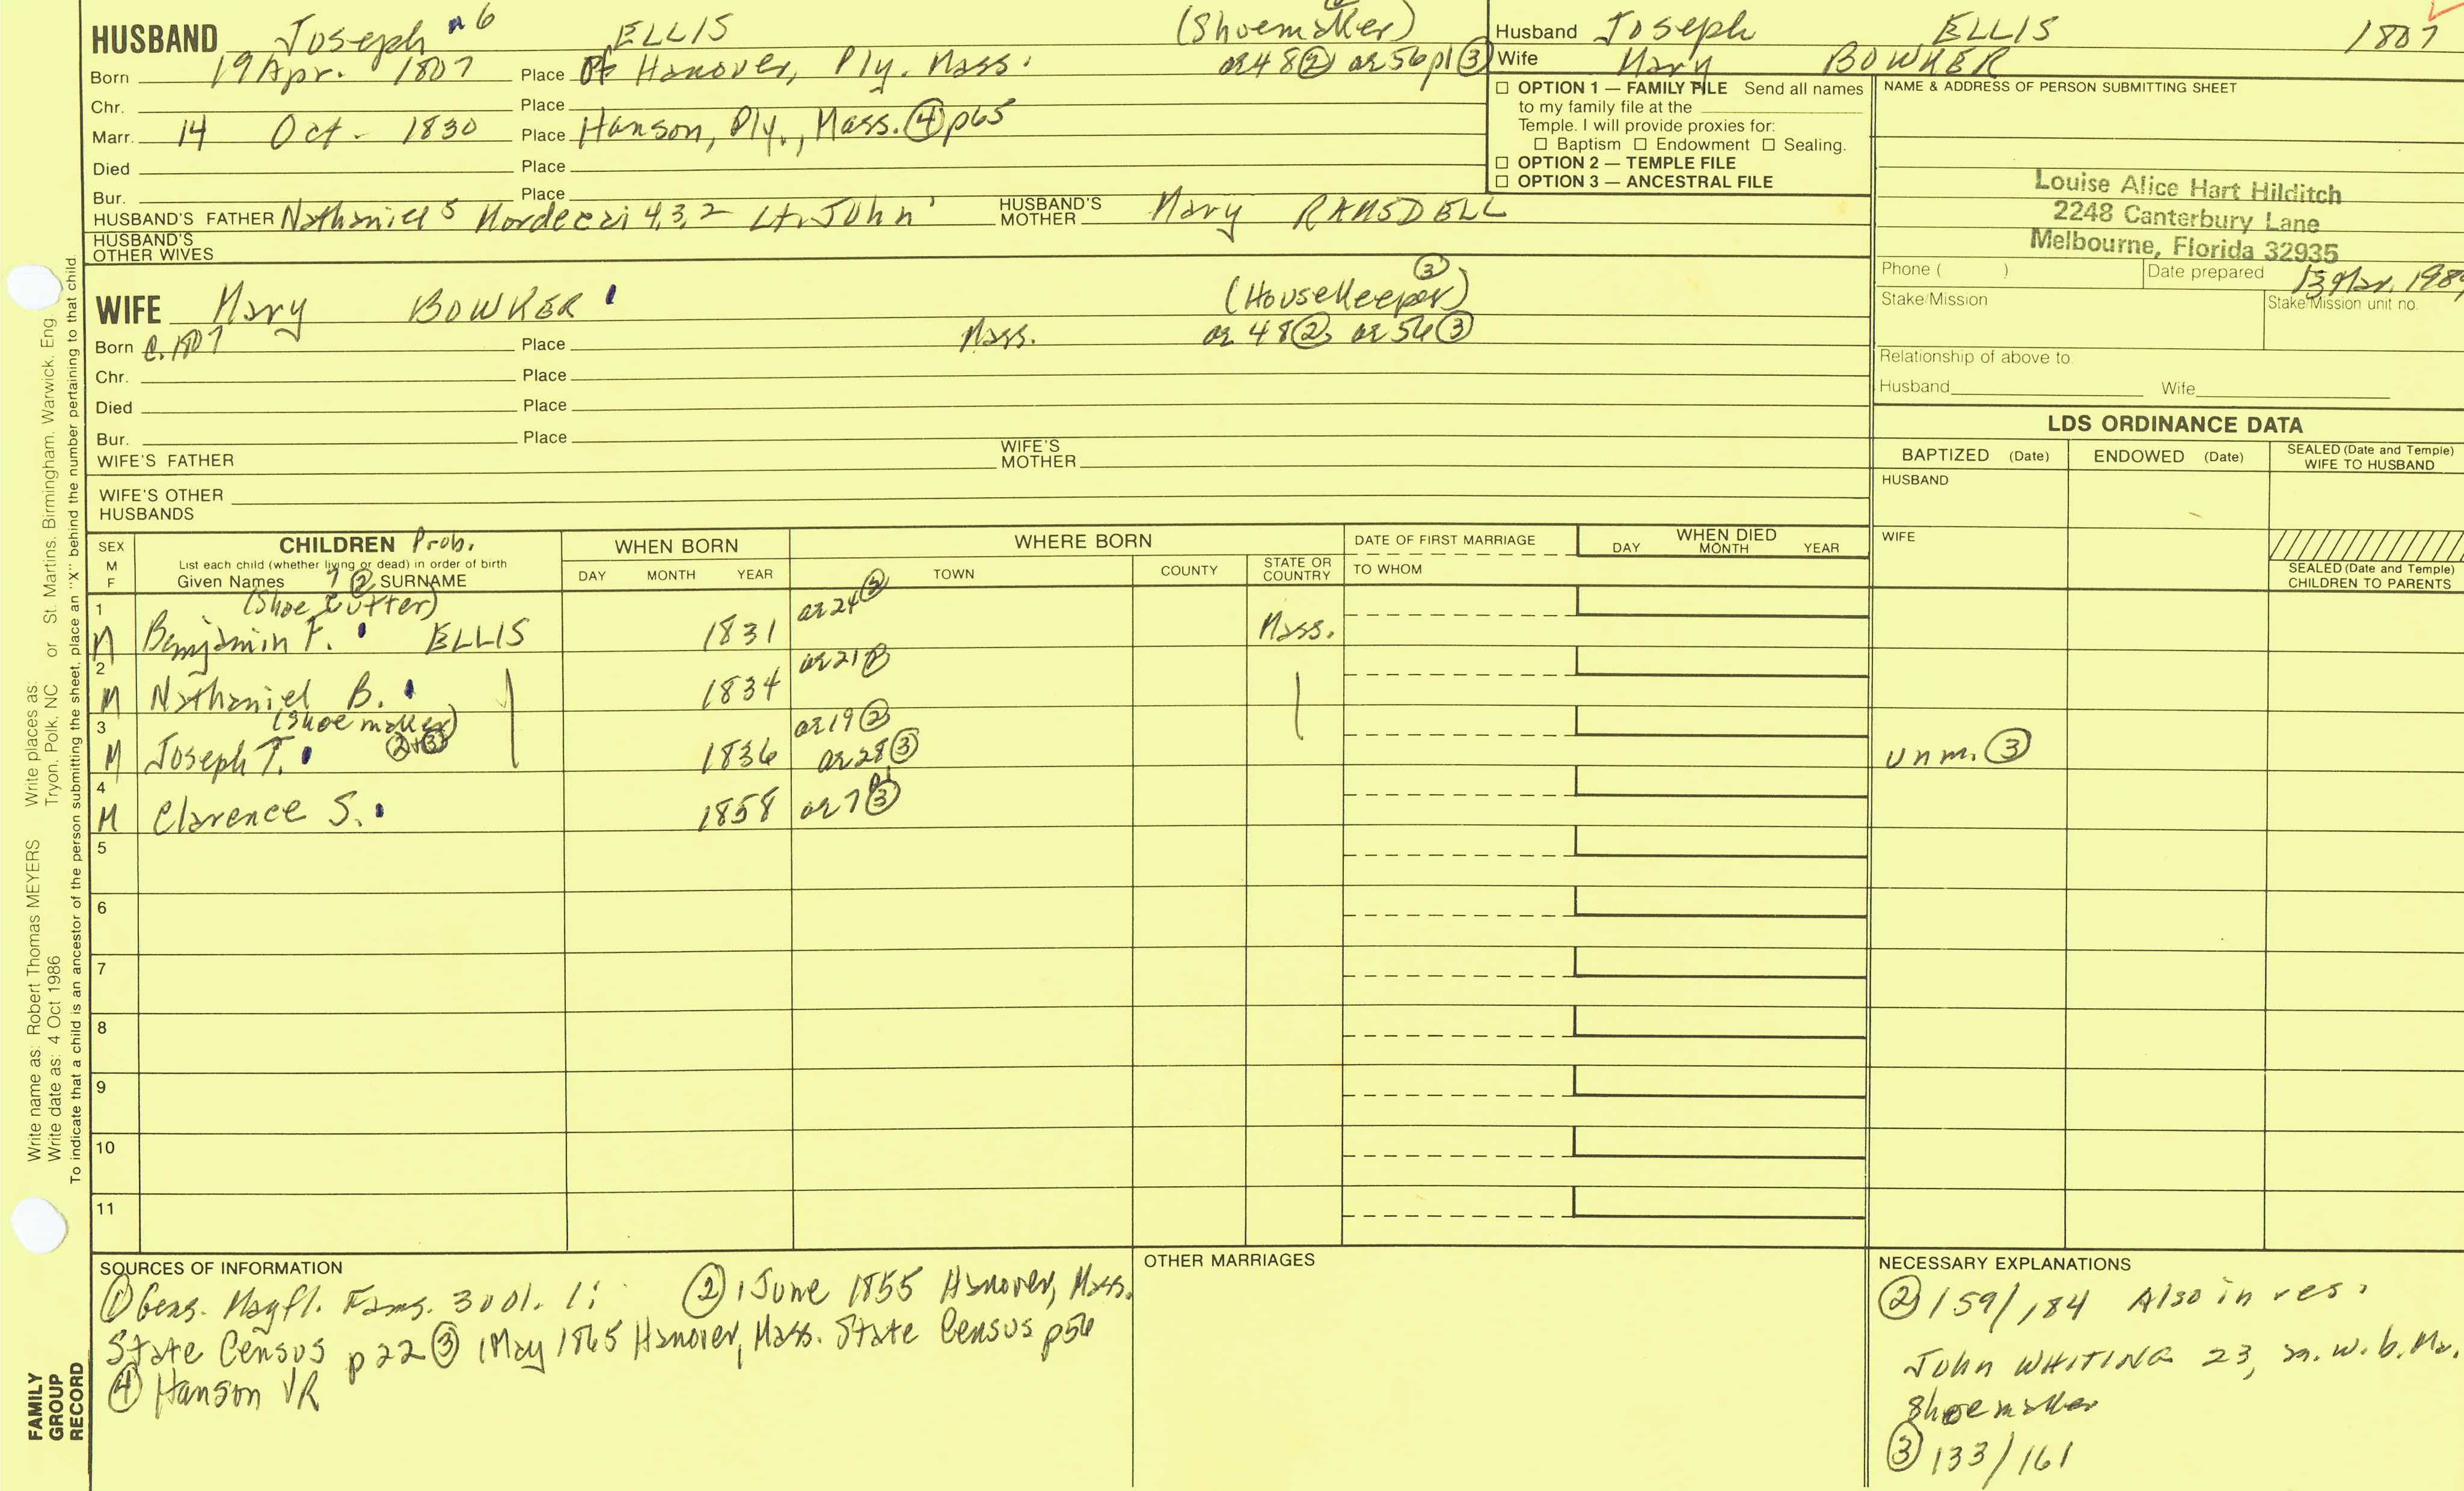 HUSBAND Joseph 6 ELLIS (Shoemaker)
Born 19 Apr. 1807 Place Of Hanover, Ply. Mass. ae 48 ② ae 56 p1 ③
Chr. Place
Marr. 14 Oct. 1830 Place Hanson, Ply., Mass. ④ p65
Died Place
Bur. Place
HUSBAND'S FATHER Nathaniel 5 Mordecai 4,3,2 Lt. John 1 HUSBAND'S MOTHER Mary RAMSDELL
HUSBAND'S OTHER WIVES
Husband Joseph ELLIS 1807
Wife Mary BOWKER
☐ OPTION 1 — FAMILY FILE Send all names
to my family file at the
Temple. I will provide proxies for:
☐ Baptism ☐ Endowment ☐ Sealing.
☐ OPTION 2 — TEMPLE FILE
☐ OPTION 3 — ANCESTRAL FILE
NAME & ADDRESS OF PERSON SUBMITTING SHEET
Louise Alice Hart Hilditch
2248 Canterbury Lane
Melbourne, Florida 32935
Phone ( ) Date prepared 13 Mar. 198
Stake/Mission Stake/Mission unit no.
Relationship of above to
Husband Wife
③
WIFE Mary BOWKER (Housekeeper)
Born c. 1807 Place Mass. ae 48 ② ae 56 ③
Chr. Place
Died Place
Bur. Place
WIFE'S FATHER WIFE'S MOTHER
WIFE'S OTHER HUSBANDS
LDS ORDINANCE DATA
BAPTIZED (Date) ENDOWED (Date) SEALED (Date and Temple) WIFE TO HUSBAND
HUSBAND
WIFE
SEALED (Date and Temple) CHILDREN TO PARENTS
SEX M F CHILDREN Prob. WHEN BORN WHERE BORN DATE OF FIRST MARRIAGE WHEN DIED
List each child (whether living or dead) in order of birth
Given Names 7 ② SURNAME DAY MONTH YEAR TOWN COUNTY STATE OR COUNTRY TO WHOM DAY MONTH YEAR
1 (Shoe Cutter) ae 24 ②
M Benjamin F. ELLIS 1831 Mass.
2 ae 21
M Nathaniel B. 1834
3 (Shoe maker) ae 19 ②
M Joseph T. ②+③ 1836 ae 28 ③ unm. ③
4
M Clarence S. 1858 ae 7 ③
5
6
7
8
9
10
11
SOURCES OF INFORMATION
① Gens. Mayfl. Fams. 3 vol. 1: ② 1 June 1855 Hanover, Mass.
State Census p22 ③ 1 May 1865 Hanover, Mass. State Census p56
④ Hanson VR
OTHER MARRIAGES
NECESSARY EXPLANATIONS
② 159/184 Also in res.
John WHITING 23, m. w. b. Ma.
Shoemaker
③ 133/161
Write name as: Robert Thomas MEYERS Write places as:
Write date as: 4 Oct 1986 Tryon, Polk, NC or St. Martins, Birmingham, Warwick, Eng
To indicate that a child is an ancestor of the person submitting the sheet, place an "X" behind the number pertaining to that child.
FAMILY
GROUP
RECORD